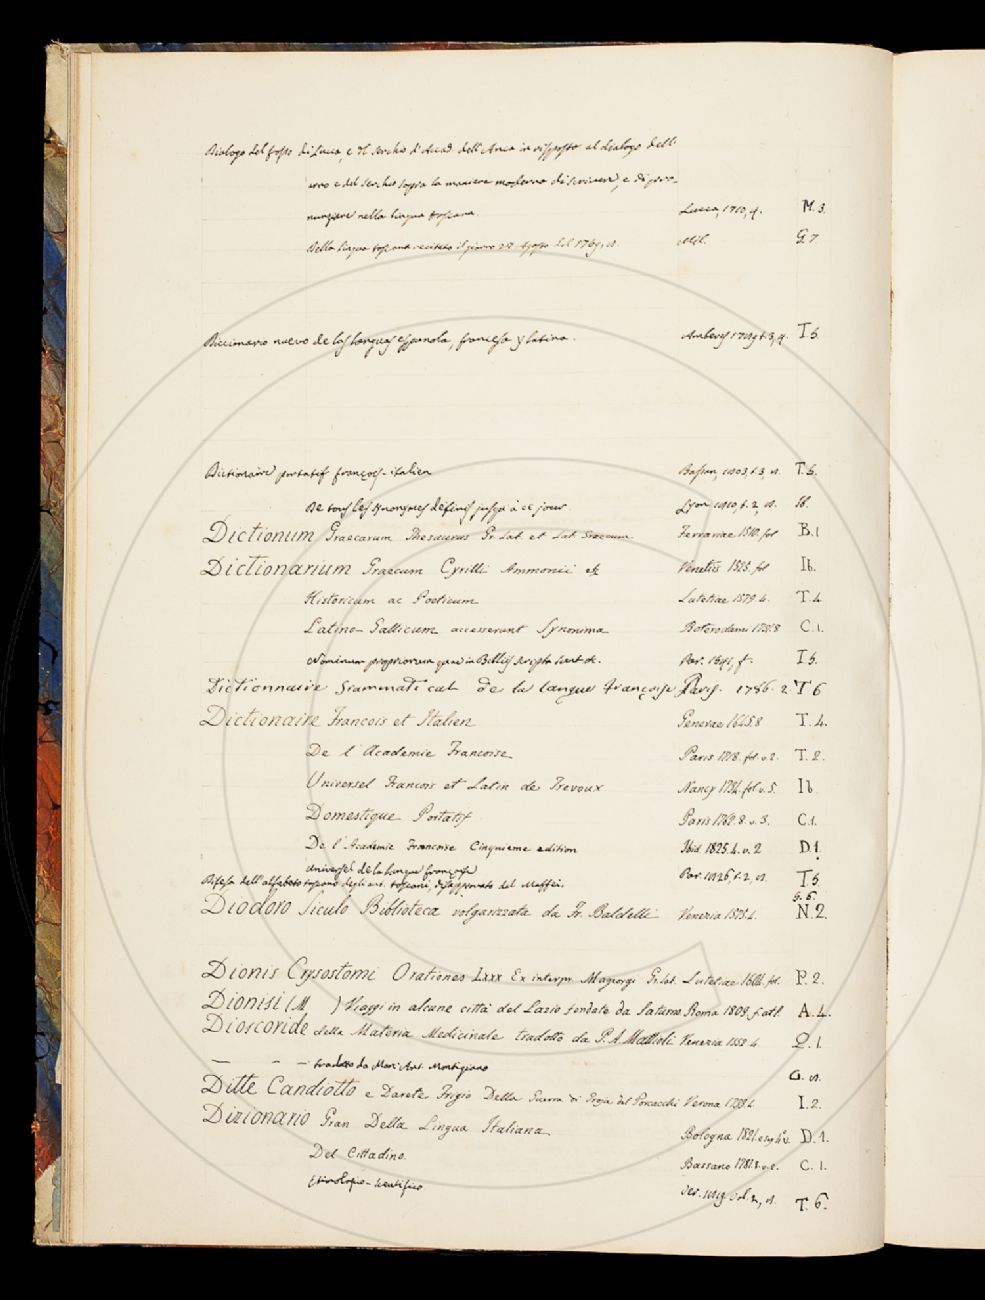 Dialogo del fosso di Lucca, e il Serchio d'Accad. dell'Anca in risposta al dialogo dell'
arno e del Serchio sopra la maniera moderna di scrivere, e di pro-
nunziare nella lingua toscana. Lucca, 1710, 4. M. 3.
Della lingua toscana recitato il giorno 27 Agosto del 1769, 8. G. 7.
Diccionario nuevo de las lenguas española, francesa y latina. T. 5.
Dictionaire portatif françois-italien Bassan, 1803, t. 3, 8. T. 5.
De tous les synonymes définis jusqu'à ce jour Lyon 1810, t. 2, 8. Ib.
Dictionum Graecarum Thesaurus Gr. Lat. et Lat. Graecum Ferrariae 1510. fol B. 1
Dictionarium Graecum Cyrilli Ammonii & Venetiis 1525. fol Ib.
Historicum ac Poeticum Lutetiae 1579 4. T. 4
Latino-Gallicum accesserunt Synonima 8 C. 1.
Nominum propriorum quae in Bibliis scripta sunt Par. 1541, f. T. 5.
Dictionnaire Grammatical de la langue françoise Paris. 1786. 2 T 6
Dictionaire Francois et Italien Genevae 1645. 8 T. 4.
De l' Academie Francoise Paris 1718. fol. v. 2. T. 2.
Universel Francois et Latin de Trevoux Nancy fol. v. 5. Ib
Domestique Portatif Paris 1762. 8. v. 3. C. 1.
De l'Academie Francoise Cinquieme edition Ibid 1825. 4. v. 2 D. 1.
Universel de la langue françoise Par. 1826, t. 2, 8. T. 5
Difesa dell'alfabeto toscano degli ant. toscani, disapprovato dal Maffei. G. 6.
Diodoro Siculo Biblioteca volgarizzata da Fr. Baldelli Venezia 1575. 4. N. 2.
Dionis Crysostomi Orationes Lxxx Ex interpr. Gr. lat. Lutetiae 1604. fol. P. 2.
Dionisi (M ) Viaggi in alcune città del Lazio fondate da Saturno Roma 1809. f. atl. A. 4.
Dioscoride della Materia Medicinale tradotto da P. A Mattioli Venezia 1552. 4. Q. 1.
— — — tradotto da Marc'Ant. Montigiano G. 8.
Ditte Candiotto e Darete Frigio Della Guerra di Troja del Porcacchi Verona T. 2.
Dizionario Gran Della Lingua Italiana Bologna D. 1.
Del Cittadino. Bassano C. 1.
Etimologico-scientifico Ver. 1819. vol. 2, 8. T. 6.